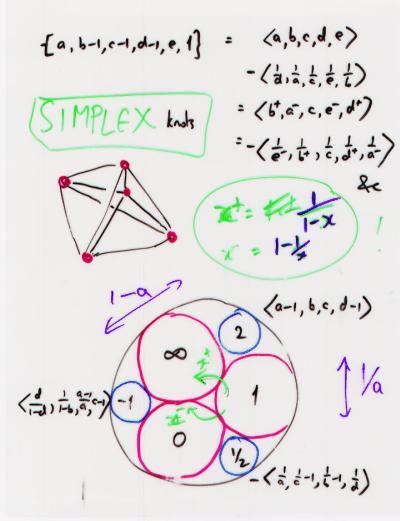 {a, b-1, c-1, d-1, e, 1} = ⟨a, b, c, d, e⟩
-⟨1/d, 1/a, 1/c, 1/e, 1/b⟩
SIMPLEX knots
= ⟨b⁺, a⁻, c, e⁻, d⁺⟩
= -⟨1/e⁻, 1/b⁺, 1/c, 1/d⁺, 1/a⁻⟩
&c
x⁺ = 1/1-x
x⁻ = 1-1/x
!
1-a
⟨a-1, b, c, d-1⟩
∞
2
x⁺
1/a
1
⟨d/1-d, 1/1-b, a-1/a, c-1⟩
-1
x⁻
0
1/2
-⟨1/a, c-1, 1/b-1, 1/d⟩